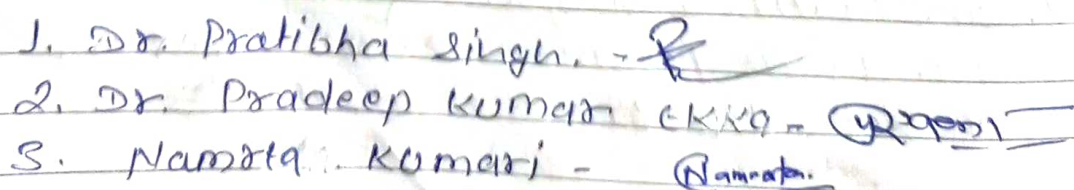 1. Dr. Pratibha Singh. -
2. Dr. Pradeep Kumar Ekka -
3. Namrta Kumari - Namrata.